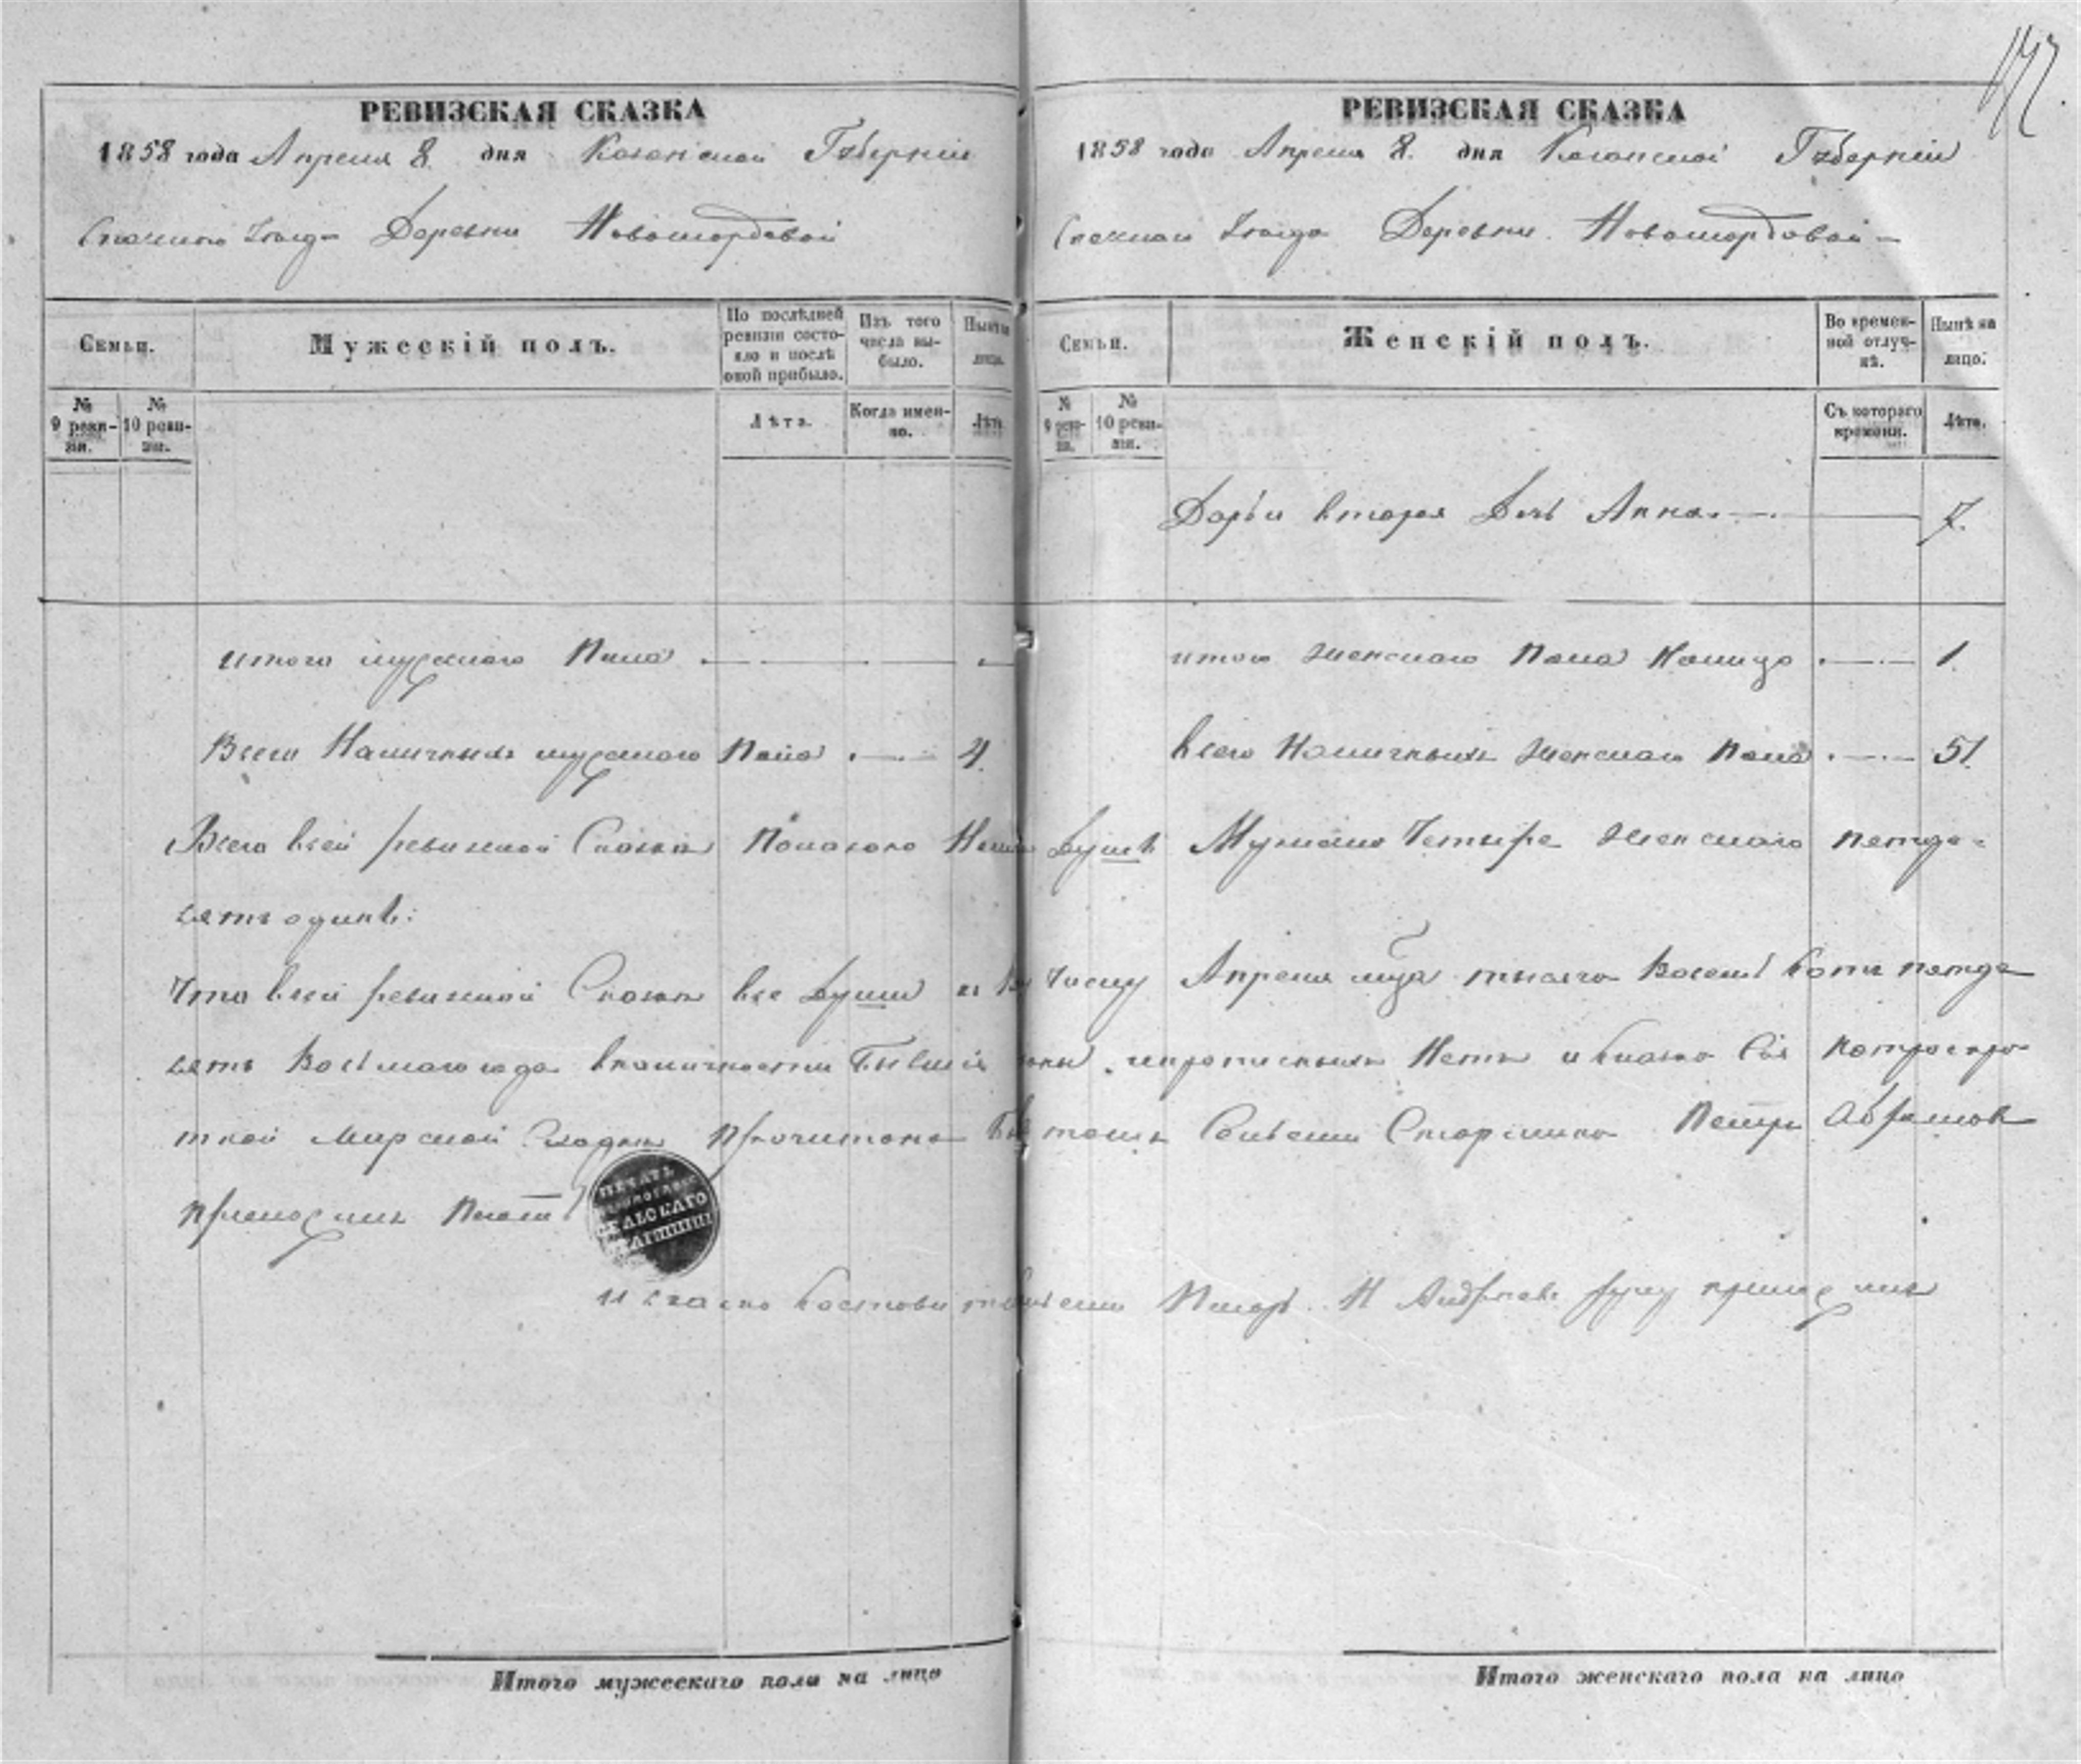 РЕВИЗСКАЯ СКАЗКА
1858 года Апреля 8. дня Казанской Губернии
Спаского Уезда Деревни Новомордовой
Семьи.
Мужескій полъ.
По послѣдней ревизіи состояло и послѣ оной прибыло.
Изъ того числа выбыло.
Нынѣ на лицо.
№ 9 ревизіи.
№ 10 ревизіи.
Лѣта.
Когда именно.
Лѣта.
итого мужеского Пола
Всего Наличных мужеского Пола 4.
РЕВИЗСКАЯ СКАЗКА
1858 года Апреля 8. дня Казанской Губернии
Спаского Уезда Деревни Новомордовой
Семьи.
Женскій полъ.
Во временной отлучкѣ.
Нынѣ на лицо.
№ 9 ревизіи.
№ 10 ревизіи.
Съ котораго времени.
Лѣта.
Дарьи вторая Дочь Анна 7.
итого женского Пола Налицо 1.
всего Наличных женского Пола 51.
Всего всей ревизской Сказки Показано Душъ Мужеска Четыре женского петде=
сятъ одинъ:
Что всей ревизской Сказки все Души к числу Апреля мца тысяча Восемь Сотъ петде
сятъ Восьмого года вналичности Бывшія прописных Нетъ и Сказка Сія
мирской Сходки Прочитана Сельски Старшина Петръ Абрамов
приложилъ Печать
ПЕЧАТЬ СЕЛЬСКАГО СТАРШИНЫ
Писарь Н Андреев руку приложилъ
Итого мужескаго пола на лицо
Итого женскаго пола на лицо